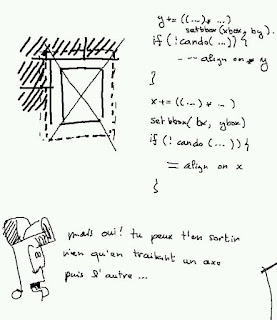 y += ((...) * ...)
setbbox(xbox, by).
if (!cando(...)) {
--- align on y
}
x += ((...) * ...)
setbbox( bx, ybox)
if (! cando (...)) {
= align on x
}
mais oui! tu peux t'en sortir
rien qu'en traitant un axe
puis l'autre ...